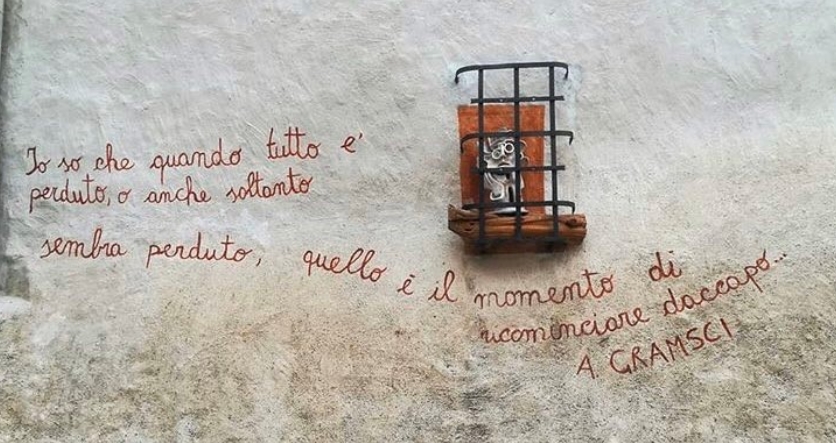 Io so che quando tutto e'
perduto, o anche soltanto
sembra perduto, quello è il momento di
ricominciare daccapo...
A. GRAMSCI